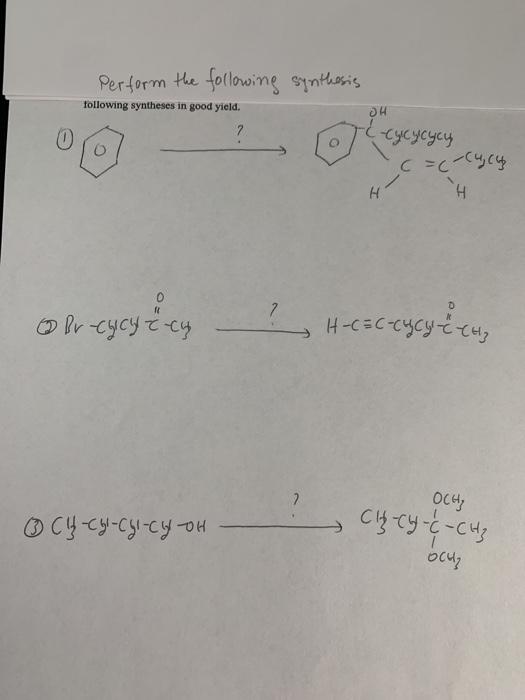 Perform the following synthesis
following syntheses in good yield.
① ? OH
C-CH₂CH₂CH₂CH₃
C=C-CH₂CH₃
H H
② Br-CH₂CH₂-C-CH₃ ? H-C≡C-CH₂CH₂-C-CH₃
O O
③ CH₃-CH₂-CH₂-CH₂-OH ? CH₃-CH₂-C-CH₃
OCH₃
OCH₃